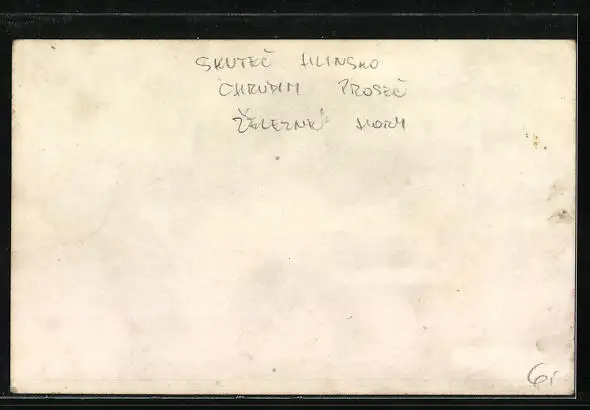 SKUTEČ HLINSKO
CHRUDIM PROSEČ
ŽELEZNÉ HORY
6,